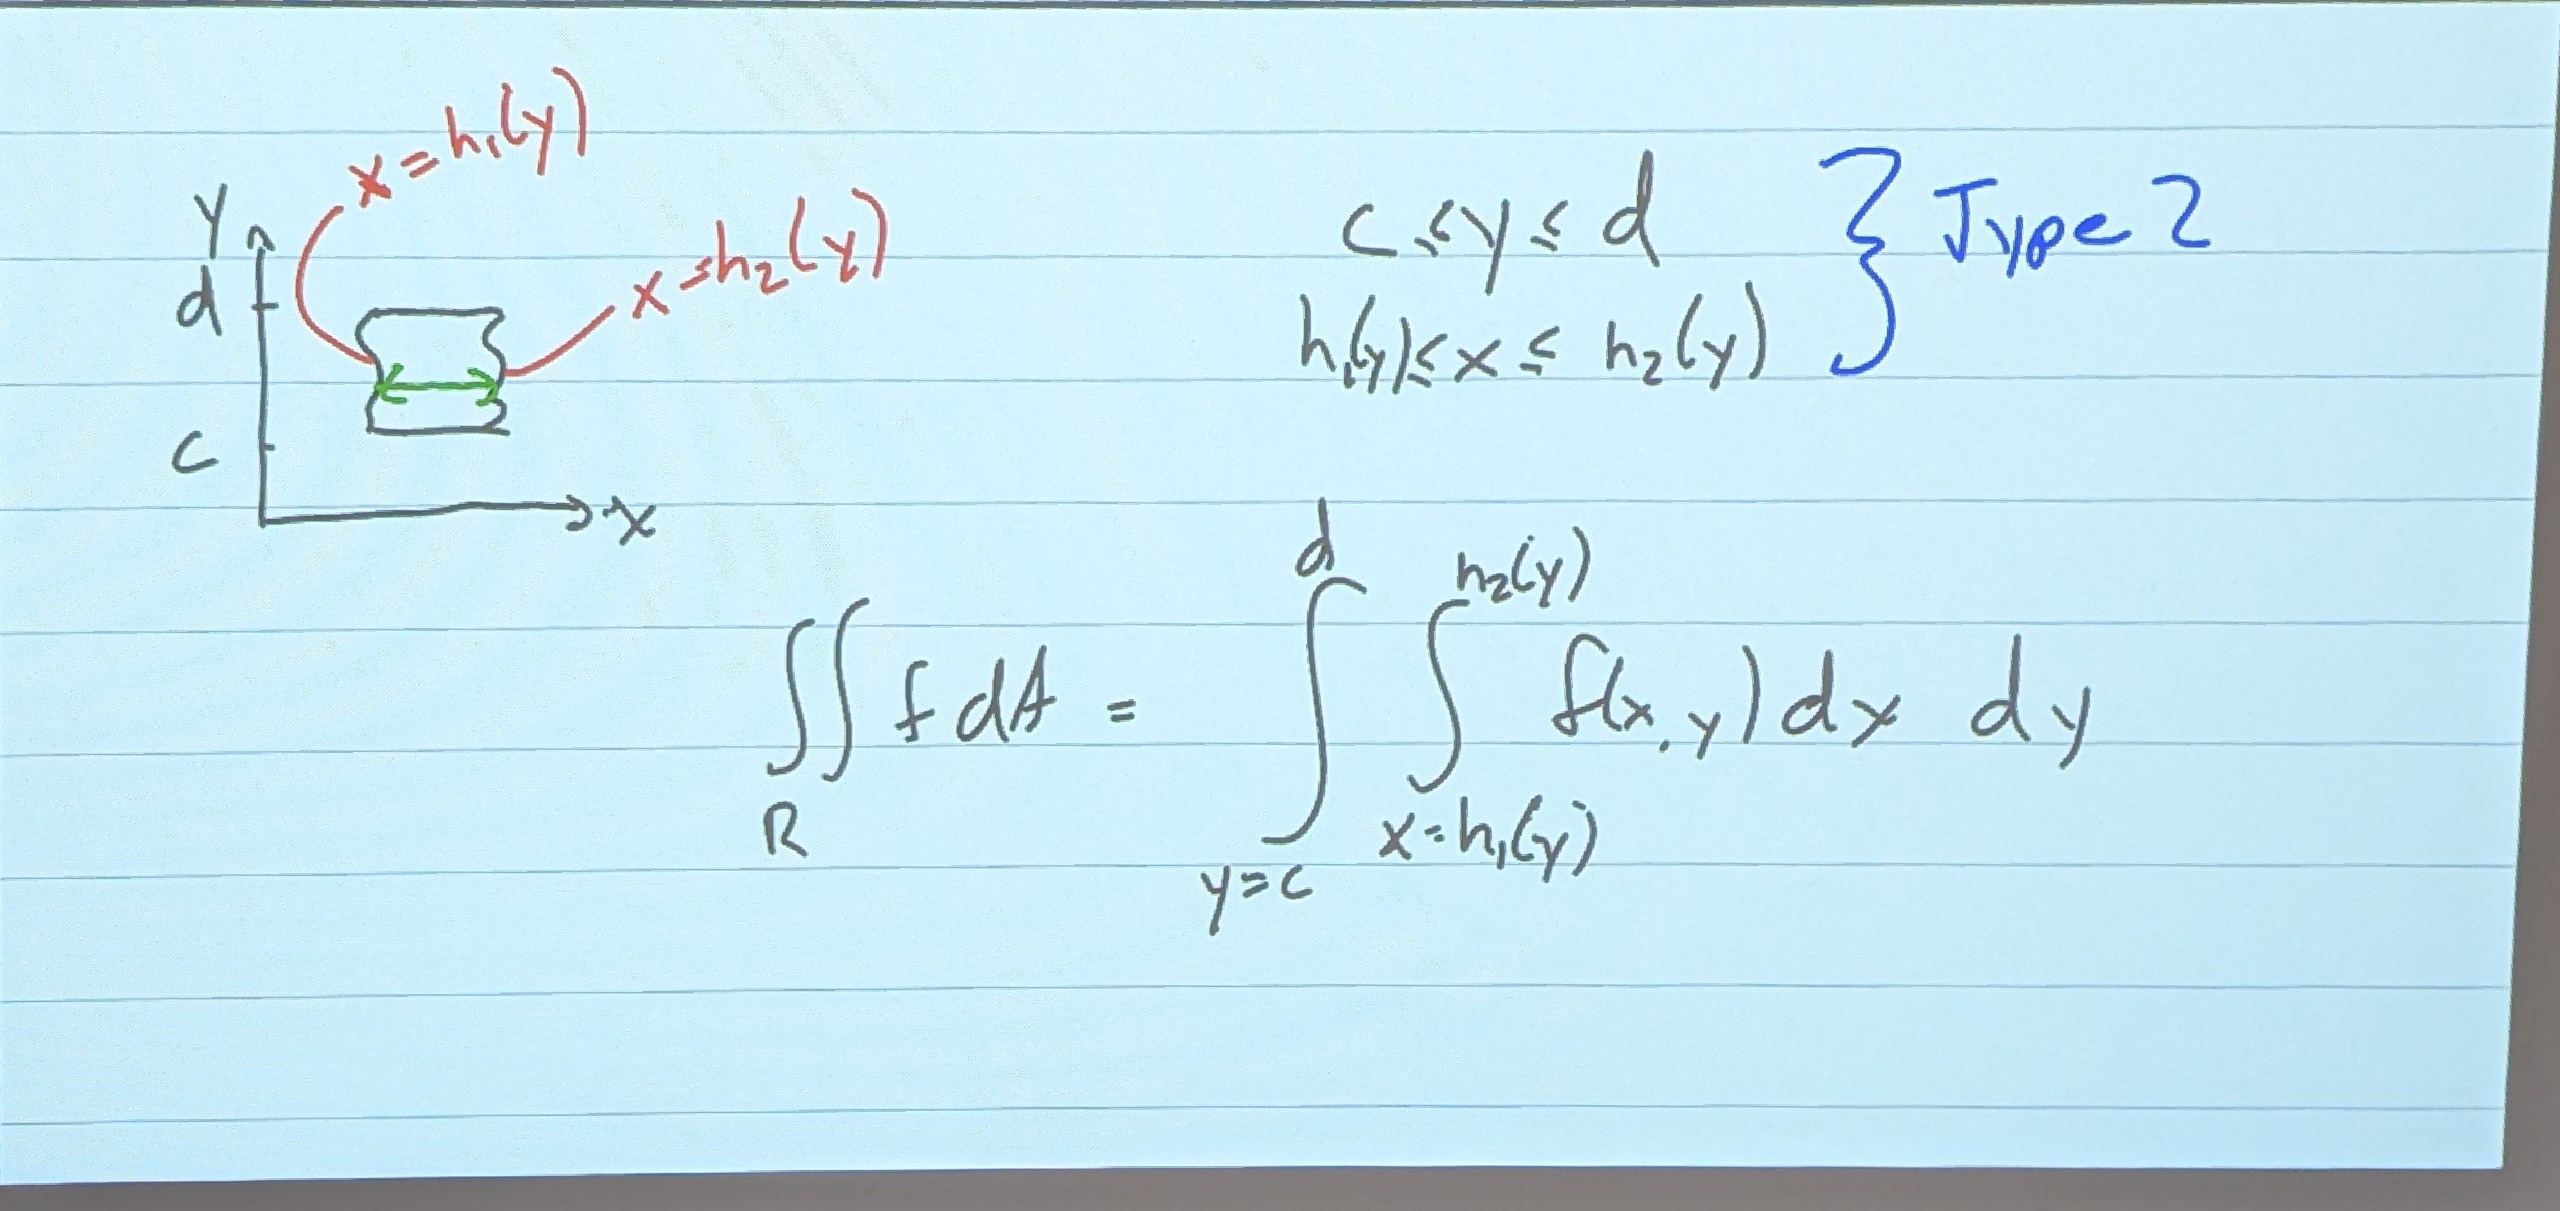 x = h₁(y)
x = h₂(y)
y
d
c
x
c ≤ y ≤ d
h₁(y) ≤ x ≤ h₂(y)
} Type 2
∬_R f dA = ∫_{y=c}^{d} ∫_{x=h₁(y)}^{h₂(y)} f(x,y) dx dy